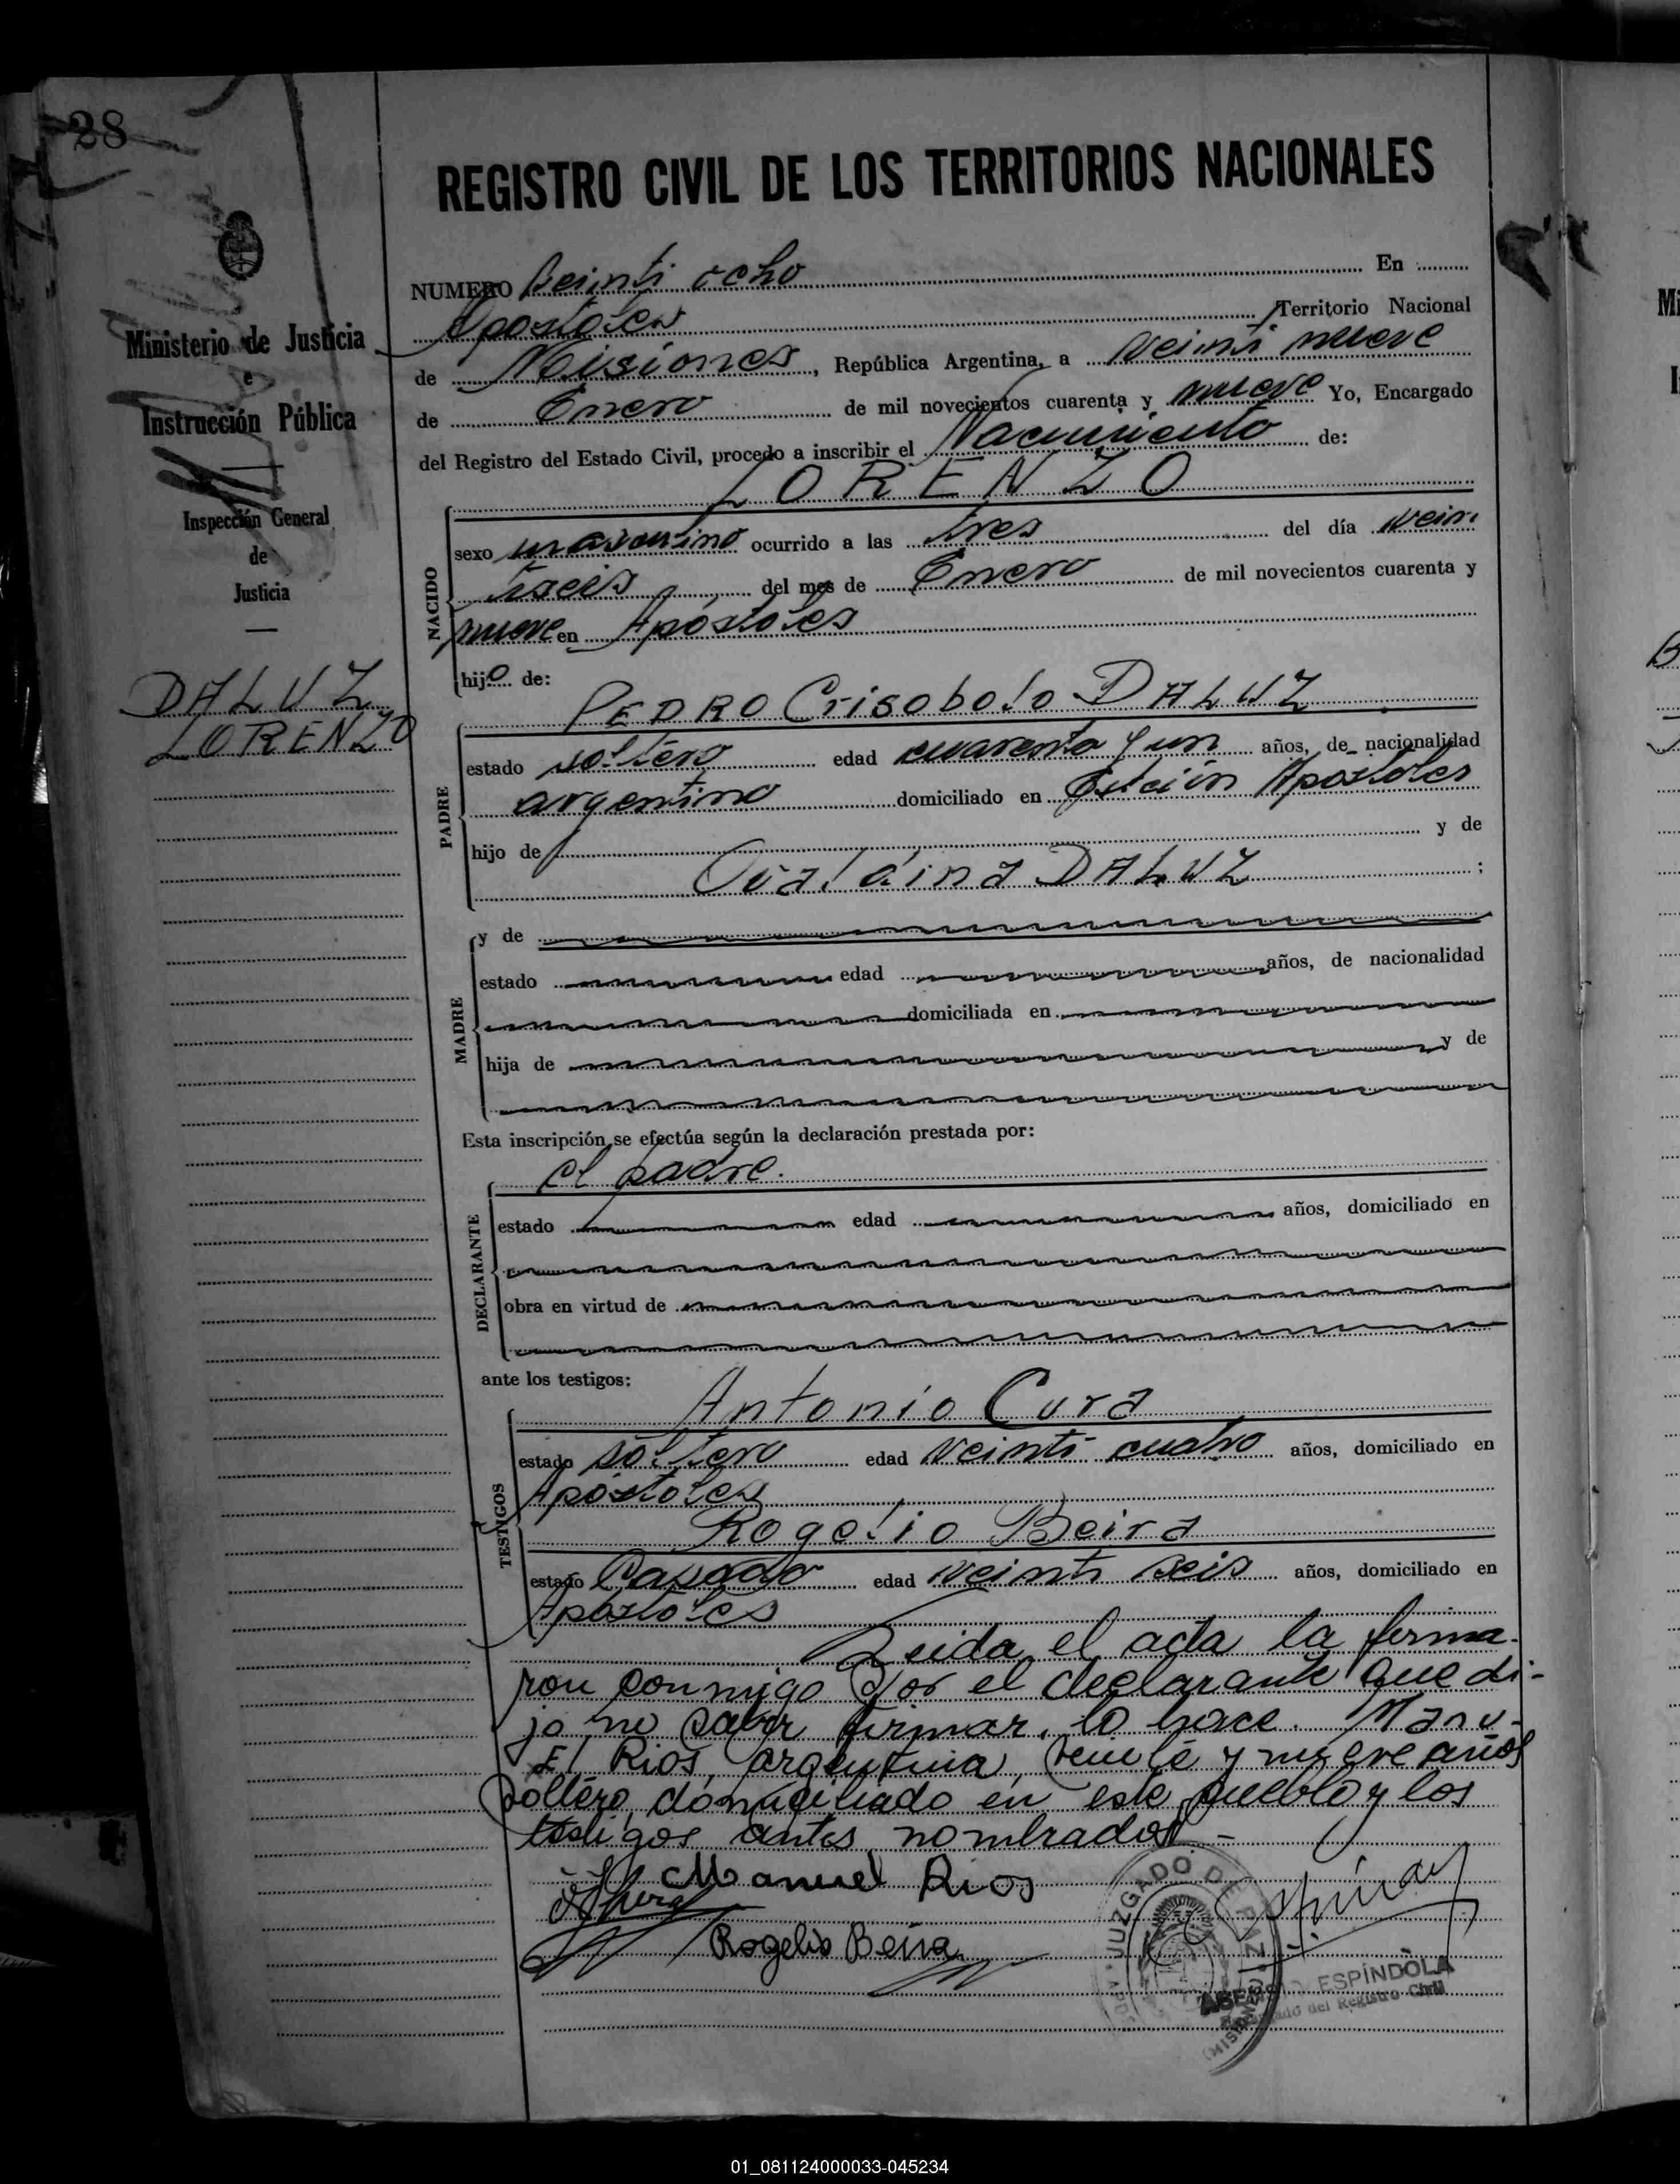 28
REGISTRO CIVIL DE LOS TERRITORIOS NACIONALES
Ministerio de Justicia
e
Instrucción Pública
Inspección General
de
Justicia
DALUZ
LORENZO
NUMERO Veinti ocho En
Apostoles Territorio Nacional
de Misiones, República Argentina, a veinti nueve
de Enero de mil novecientos cuarenta y nueve Yo, Encargado
del Registro del Estado Civil, procedo a inscribir el Nacimiento de:
LORENZO
NACIDO
sexo masculino ocurrido a las tres del día vein
tiseis del mes de Enero de mil novecientos cuarenta y
nueve en Apóstoles
hijo de:
PEDRO Crisobolo DALUZ
PADRE
estado soltero edad cuarenta y un años, de nacionalidad
argentino domiciliado en Apóstoles
hijo de y de
DALUZ ;
MADRE
y de
estado edad años, de nacionalidad
domiciliada en
hija de y de
Esta inscripción se efectúa según la declaración prestada por:
el padre.
DECLARANTE
estado edad años, domiciliado en
obra en virtud de
ante los testigos:
TESTIGOS
Antonio Cura
estado soltero edad veinti cuatro años, domiciliado en
Apóstoles
Rogelio Beira
estado Casado edad veinti seis años, domiciliado en
Apóstoles
Leida el acta la firma-
ron conmigo por el declarante que di-
jo no saber firmar, lo hace. Manu-
El Rios, argentino, veinte y nueve años
soltero, domiciliado en este pueblo y los
testigos antes nombrados.-
Manuel Rios
Rogelio Beira
JUZGADO DE PAZ
ESPÍNDOLA
Encargado del Registro Civil
01_081124000033-045234